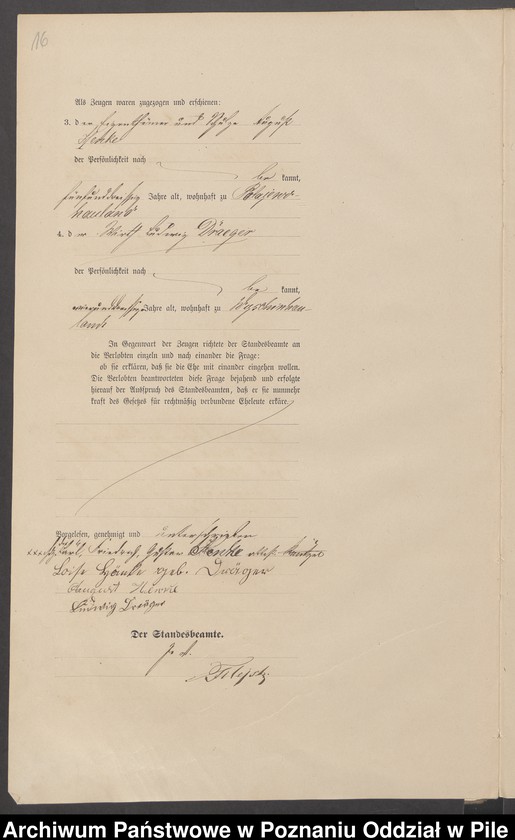 16
Als Zeugen waren zugezogen und erschienen:
3. d er Eigenthümer und Schulze August
Henke
der Persönlichkeit nach
be kannt,
fünfunddreißig Jahre alt, wohnhaft zu
hauland
4. d er Wirth Ludwig Draeger
der Persönlichkeit nach
be kannt,
Jahre alt, wohnhaft zu
land
In Gegenwart der Zeugen richtete der Standesbeamte an
die Verlobten einzeln und nach einander die Frage:
ob sie erklären, daß sie die Ehe mit einander eingehen wollen.
Die Verlobten beantworteten diese Frage bejahend und erfolgte
hierauf der Ausspruch des Standesbeamten, daß er sie nunmehr
kraft des Gesetzes für rechtmäßig verbundene Eheleute erkläre.
Vorgelesen, genehmigt und unterschrieben
Carl, Friedrich, Gustav
geb. Dräger
August
Ludwig Dreäger
Der Standesbeamte.
Archiwum Państwowe w Poznaniu Oddział w Pile